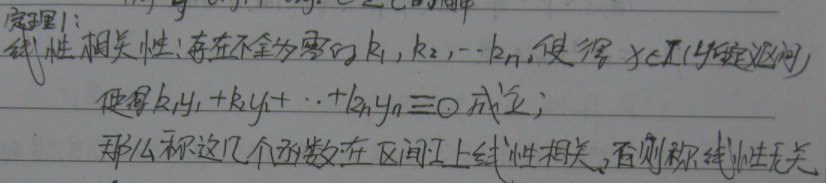 定理1:
线性相关性:存在不全为零的k₁,k₂,…kₙ,使得 x∈I(y的定义区间)
使得k₁y₁+k₂y₂+…+kₙyₙ≡0 成立;
那么称这几个函数在区间I上线性相关,否则称线性无关